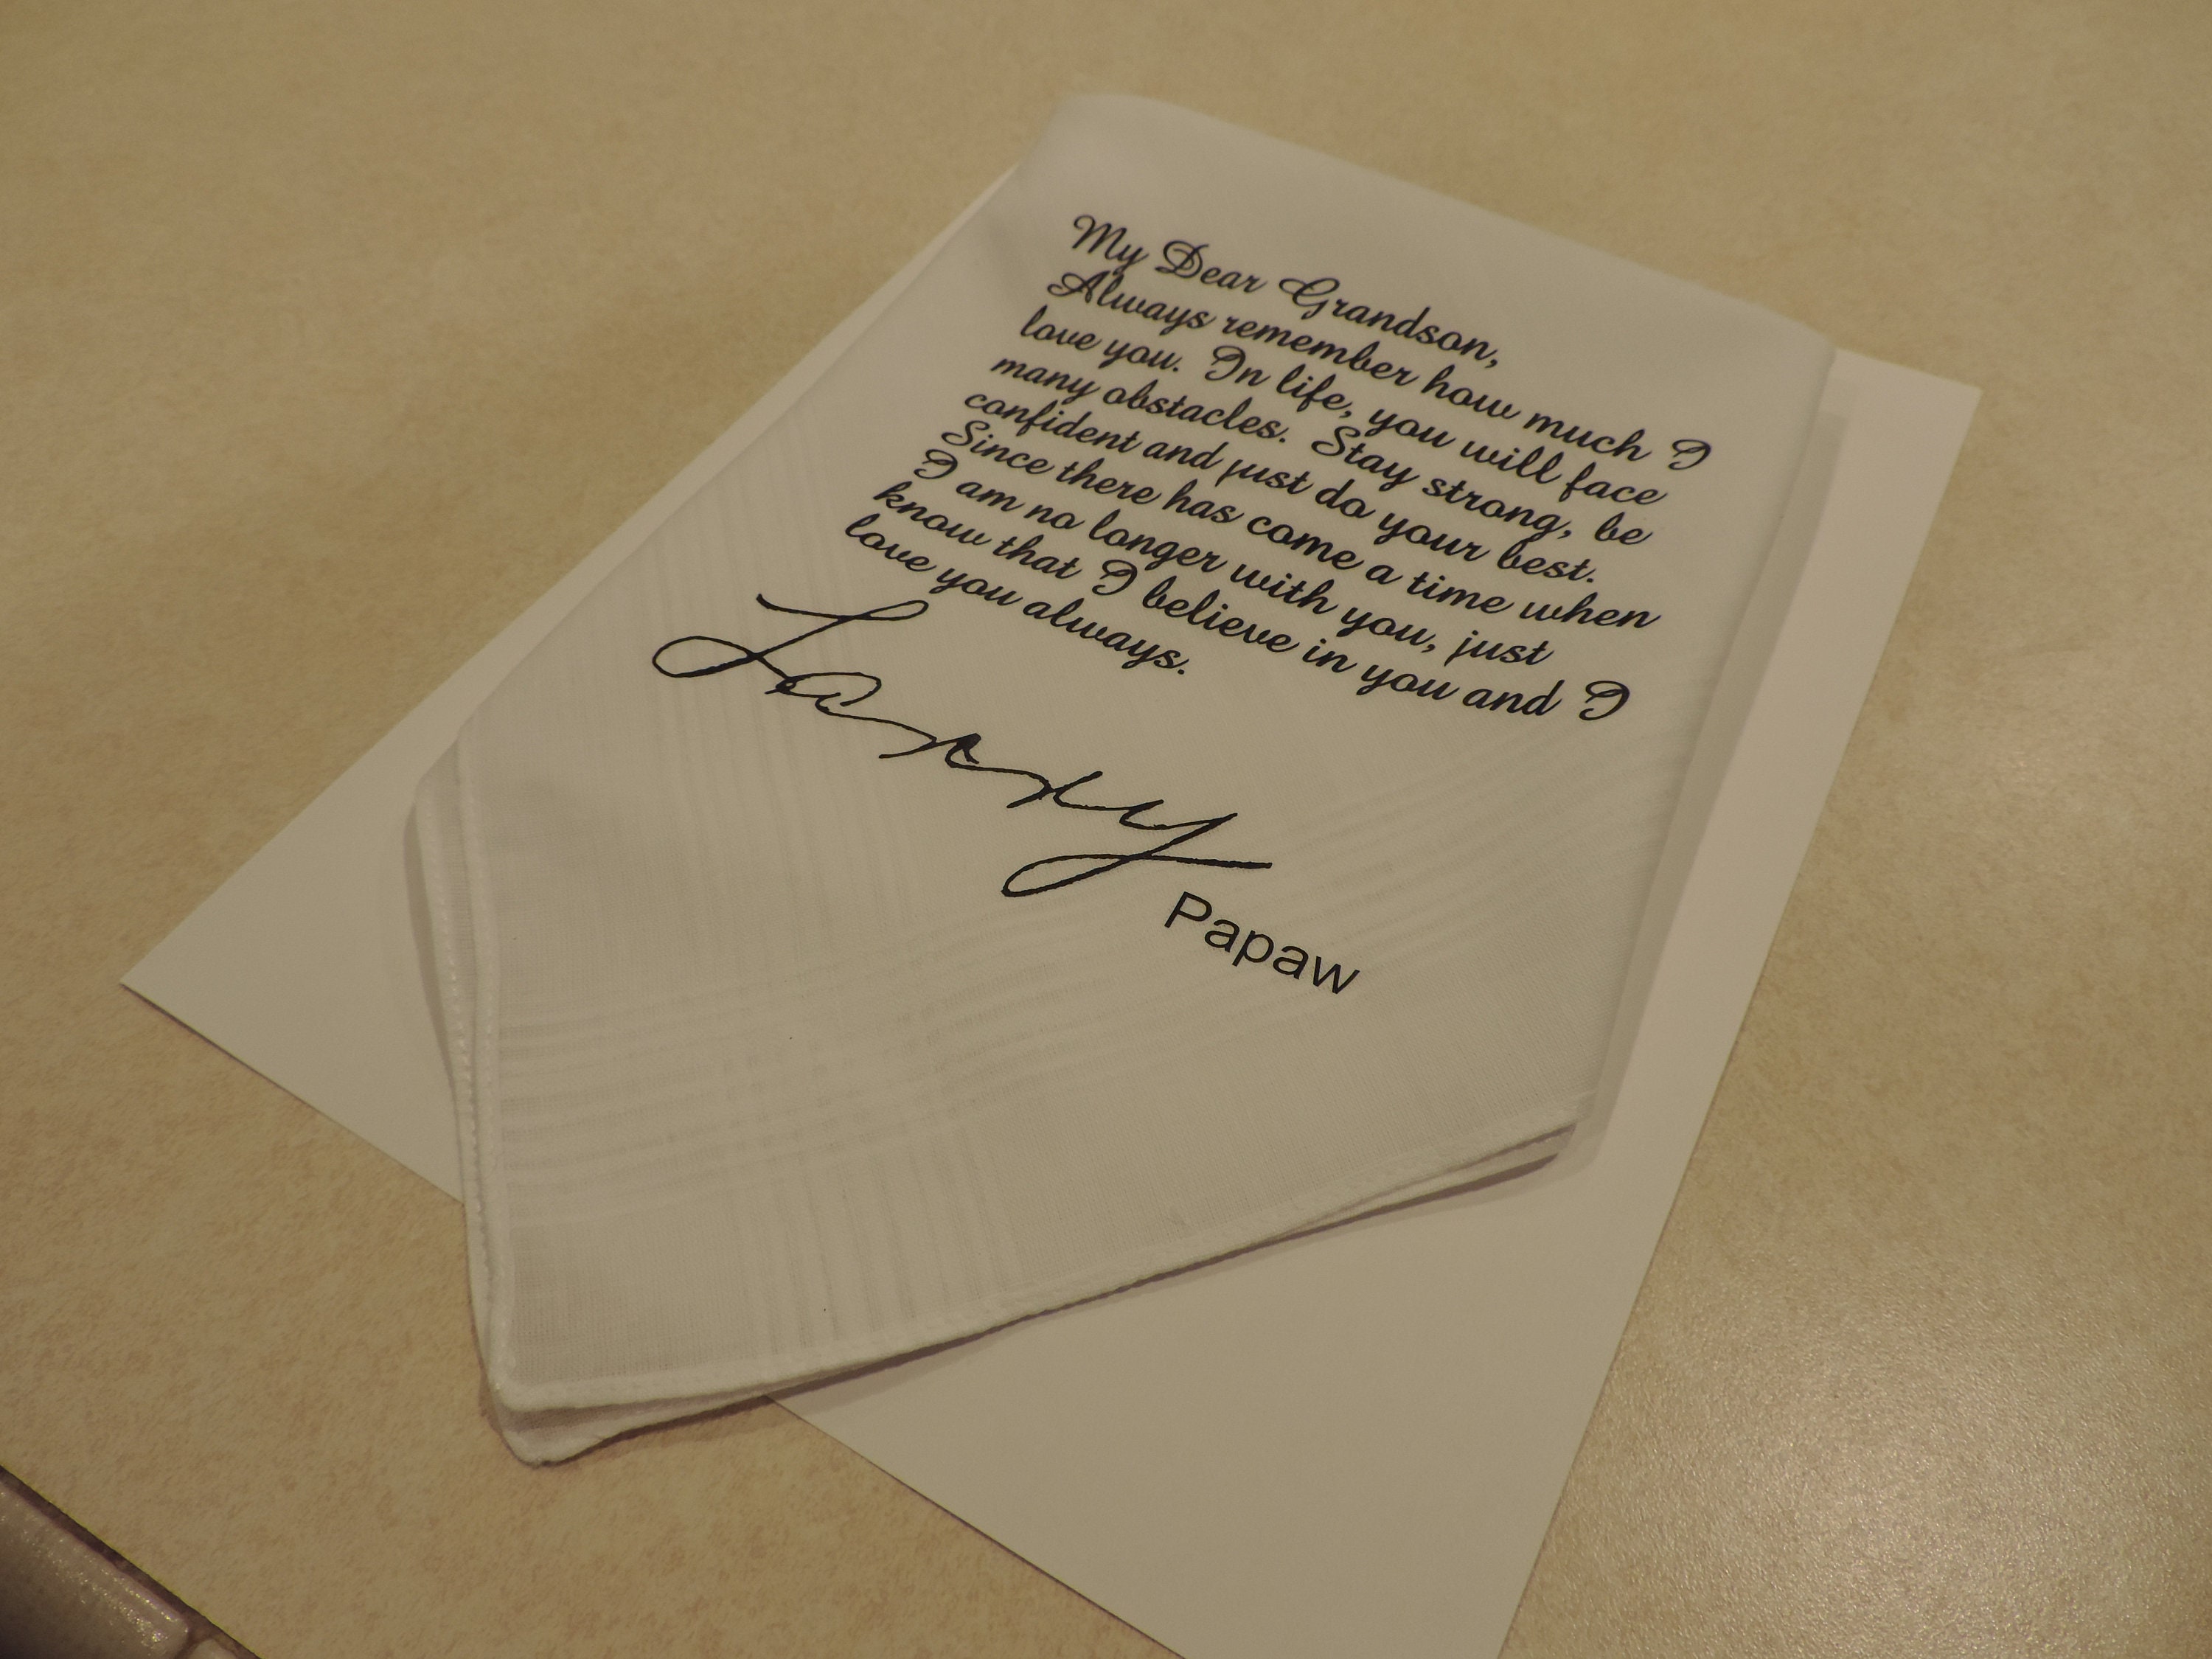 My Dear Grandson,
Always remember how much I
love you. In life, you will face
many obstacles. Stay strong, be
confident and just do your best.
Since there has come a time when
I am no longer with you, just
know that I believe in you and I
love you always.
Larry
Papaw